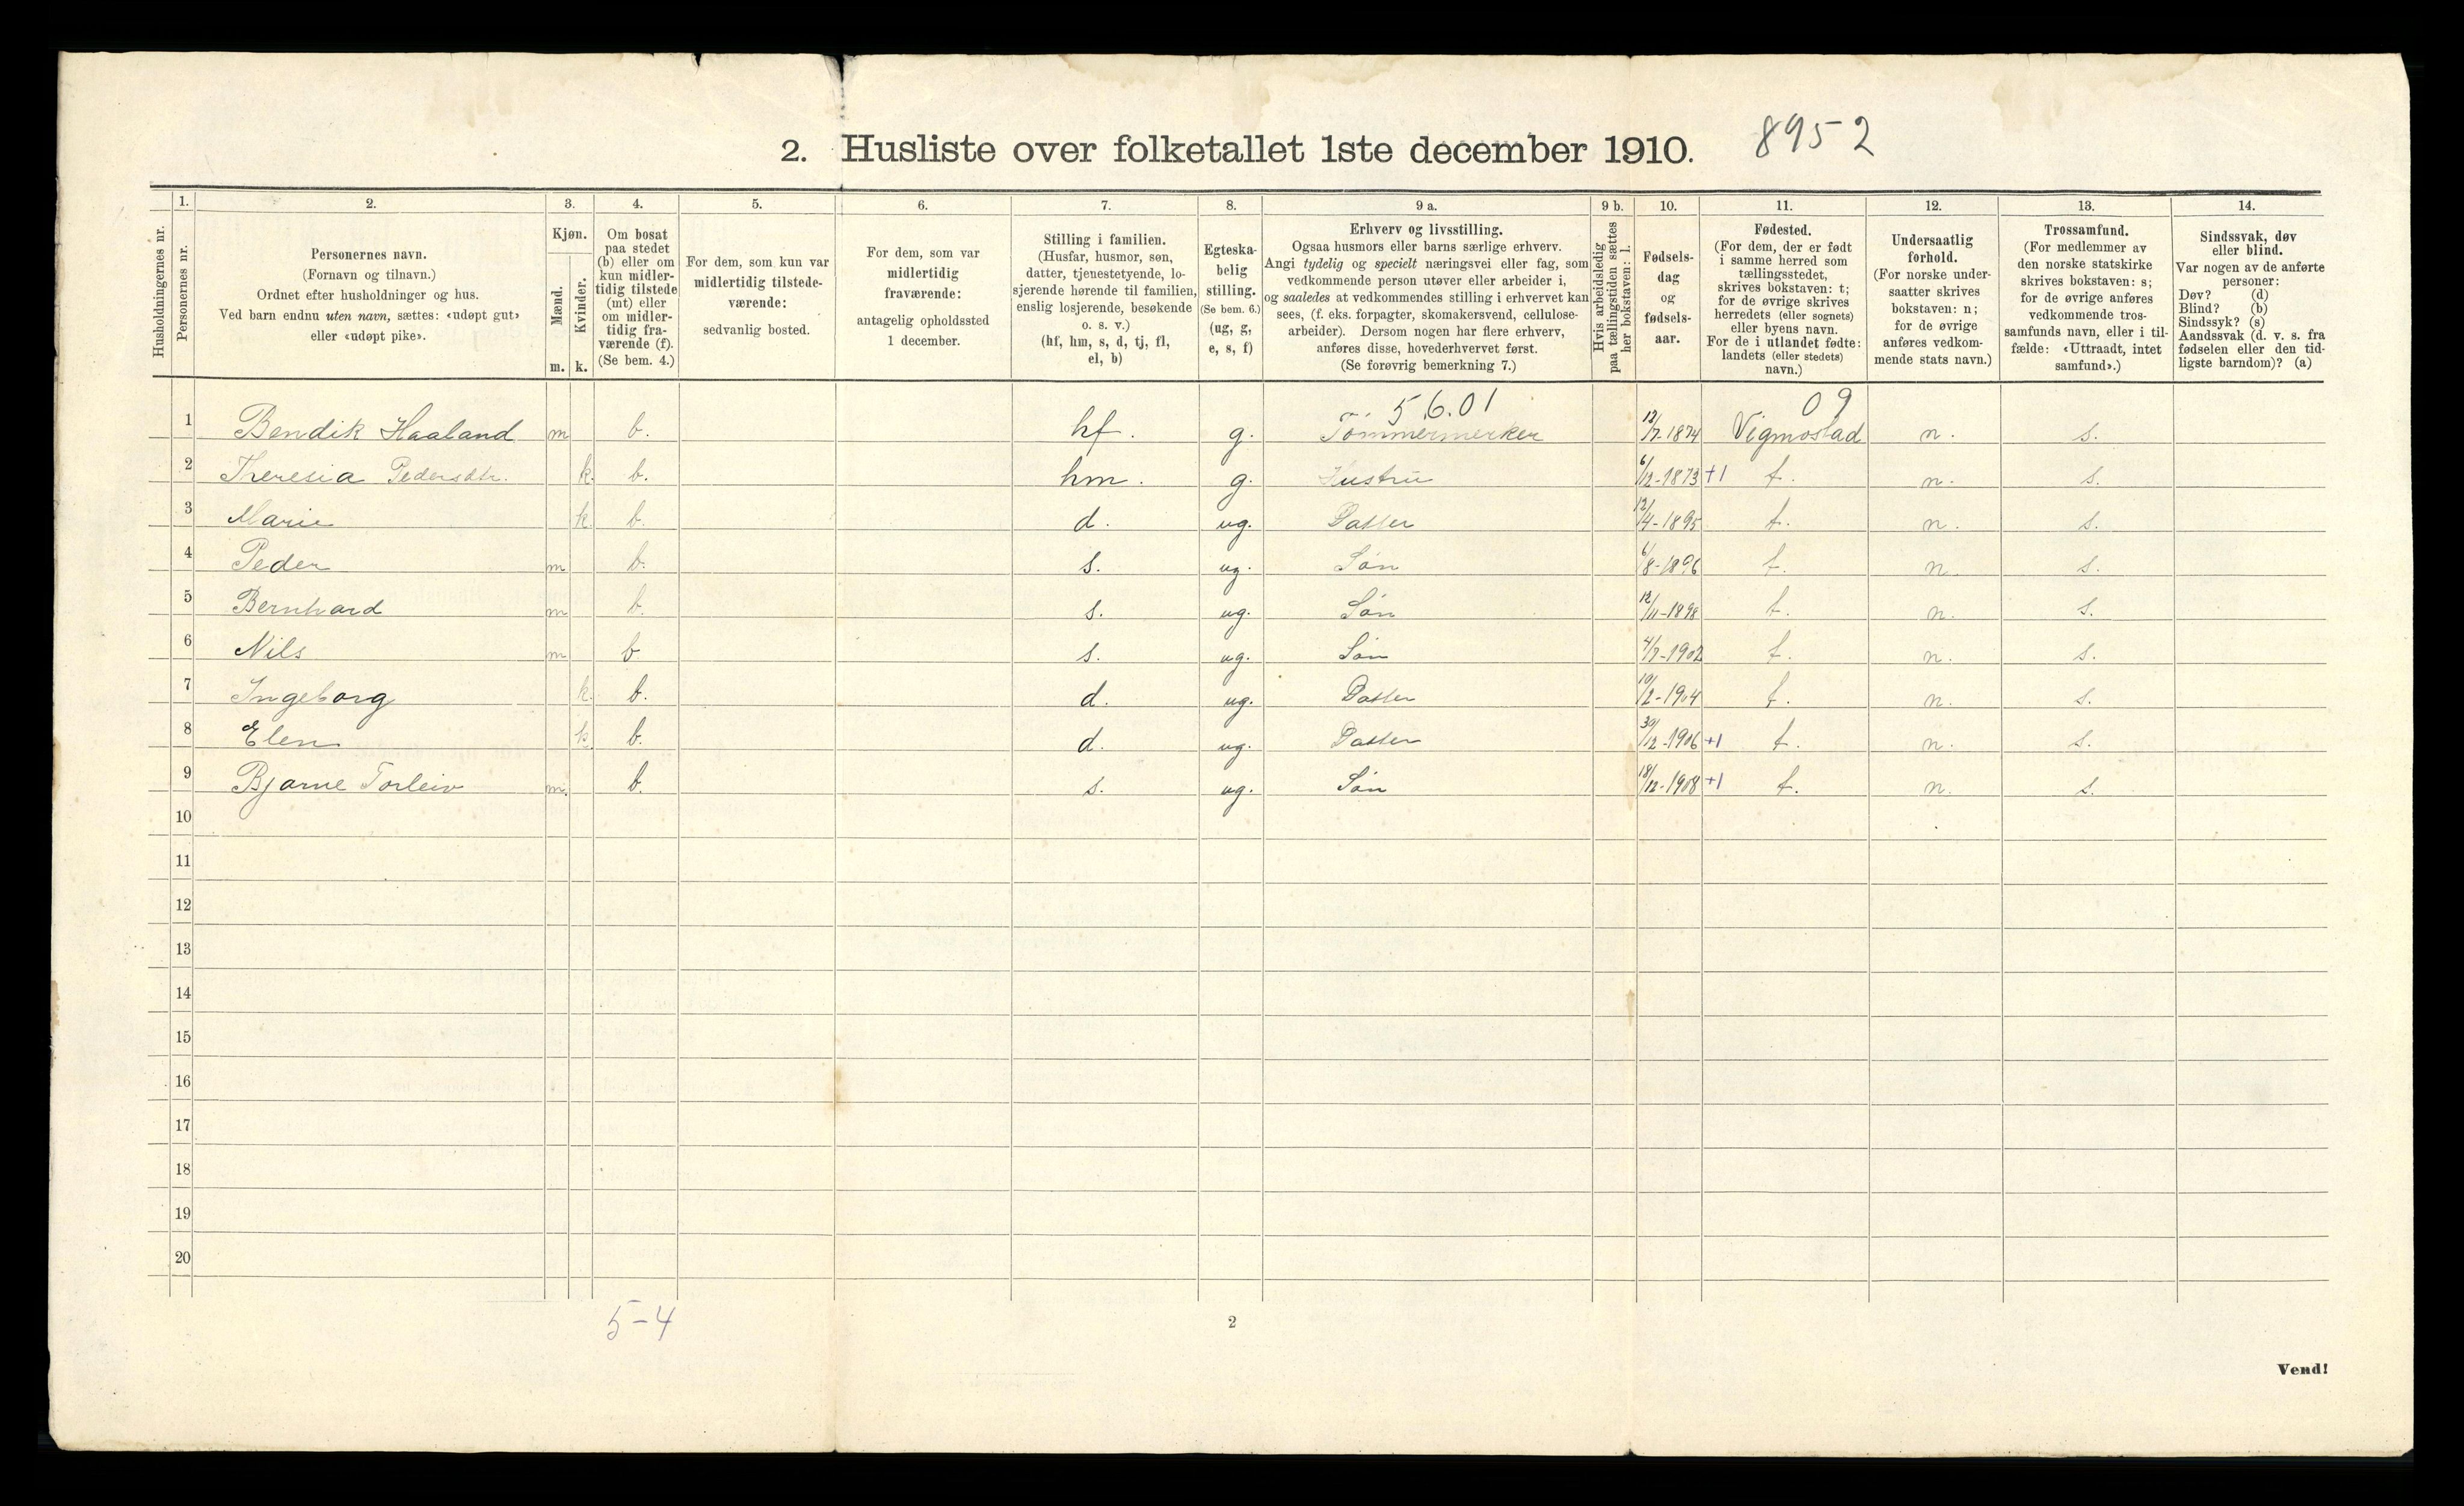 2. Husliste over folketallet 1ste december 1910. 8952
Husholdningernes nr.
1. 2. 3. 4. 5. 6. 7. 8. 9 a. 9 b. 10. 11. 12. 13. 14.
Personernes nr.
Personernes navn.
(Fornavn og tilnavn.)
Ordnet efter husholdninger og hus.
Ved barn endnu uten navn, sættes: «udøpt gut»
eller «udøpt pike».
Kjøn.
Mænd.
m.
Kvinder.
k.
Om bosat
paa stedet
(b) eller om
kun midler-
tidig tilstede
(mt) eller
om midler-
tidig fra-
værende (f).
(Se bem. 4.)
For dem, som kun var
midlertidig tilstede-
værende:
sedvanlig bosted.
For dem, som var
midlertidig
fraværende:
antagelig opholdssted
1 december.
Stilling i familien.
(Husfar, husmor, søn,
datter, tjenestetyende, lo-
sjerende hørende til familien,
enslig losjerende, besøkende
o. s. v.)
(hf, hm, s, d, tj, fl,
el, b)
Egteska-
belig
stilling.
(Se bem. 6.)
(ug, g,
e, s, f)
Erhverv og livsstilling.
Ogsaa husmors eller barns særlige erhverv.
Angi tydelig og specielt næringsvei eller fag, som
vedkommende person utøver eller arbeider i,
og saaledes at vedkommendes stilling i erhvervet kan
sees, (f. eks. forpagter, skomakersvend, cellulose-
arbeider). Dersom nogen har flere erhverv,
anføres disse, hovederhvervet først.
(Se forøvrig bemerkning 7.)
Hvis arbeidsledig
paa tællingstiden sættes
her bokstaven: l.
Fødsels-
dag
og
fødsels-
aar.
Fødested.
(For dem, der er født
i samme herred som
tællingsstedet,
skrives bokstaven: t;
for de øvrige skrives
herredets (eller sognets)
eller byens navn.
For de i utlandet fødte:
landets (eller stedets)
navn.)
Undersaatlig
forhold.
(For norske under-
saatter skrives
bokstaven: n;
for de øvrige
anføres vedkom-
mende stats navn.)
Trossamfund.
(For medlemmer av
den norske statskirke
skrives bokstaven: s;
for de øvrige anføres
vedkommende tros-
samfunds navn, eller i til-
fælde: «Uttraadt, intet
samfund».)
Sindssvak, døv
eller blind.
Var nogen av de anførte
personer:
Døv? (d)
Blind? (b)
Sindssyk? (s)
Aandssvak (d. v. s. fra
fødselen eller den tid-
ligste barndom)? (a)
5.6.01 09
1 Bendik Haaland m b. hf. g. Tømmermerker 12/7-1874 Vigmostad n. s.
2 Theresia Pedersdtr. k. b. hm. g. Hustru 6/12-1873 +1 t. n. s.
3 Marie k b. d. ug. Datter 12/4-1895 t. n. s.
4 Peder m b. s. ug. Søn 6/8-1896 t. n. s.
5 Bernhard m b. s. ug. Søn 12/11-1898 t. n. s.
6 Nils m b s. ug. Søn 4/7-1902 t. n. s.
7 Ingeborg k. b. d. ug. Datter 10/2-1904 t. n. s.
8 Elen k. b. d. ug. Datter 30/12-1906 +1 t. n. s.
9 Bjarne Torleiv m. b. s. ug. Søn 18/12-1908 +1 t. n. s.
10
11
12
13
14
15
16
17
18
19
20
5-4
2
Vend!